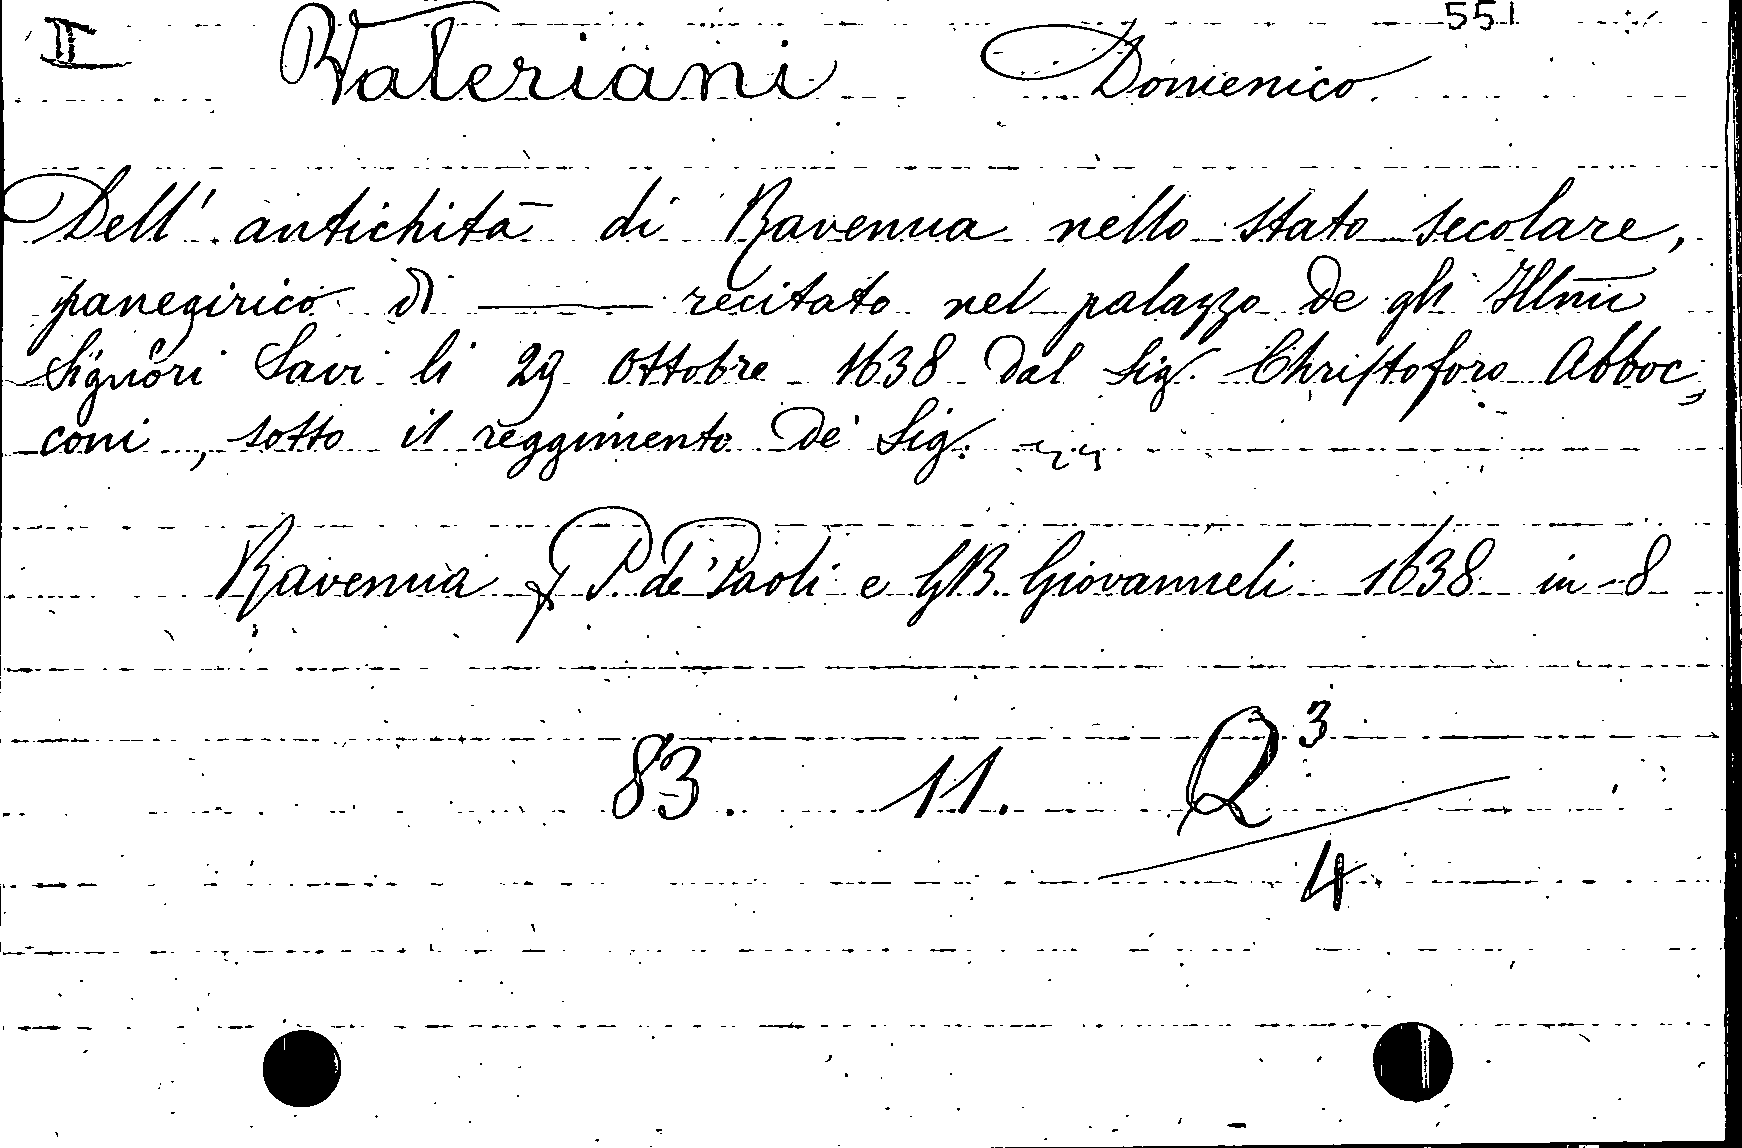 II Valeriani Domenico. 551
Dell' antichità di Ravenna nello stato secolare,
panegirico di ——— recitato nel palazzo de gli Illmi
Signori Savi li 29 Ottobre 1638 dal Sig. Christoforo Abboc,
coni, sotto il reggimento de' Sig.
Ravenna P. de' Paoli e GB. Giovannelli 1638 in-8
83. 11. Q 3
4.